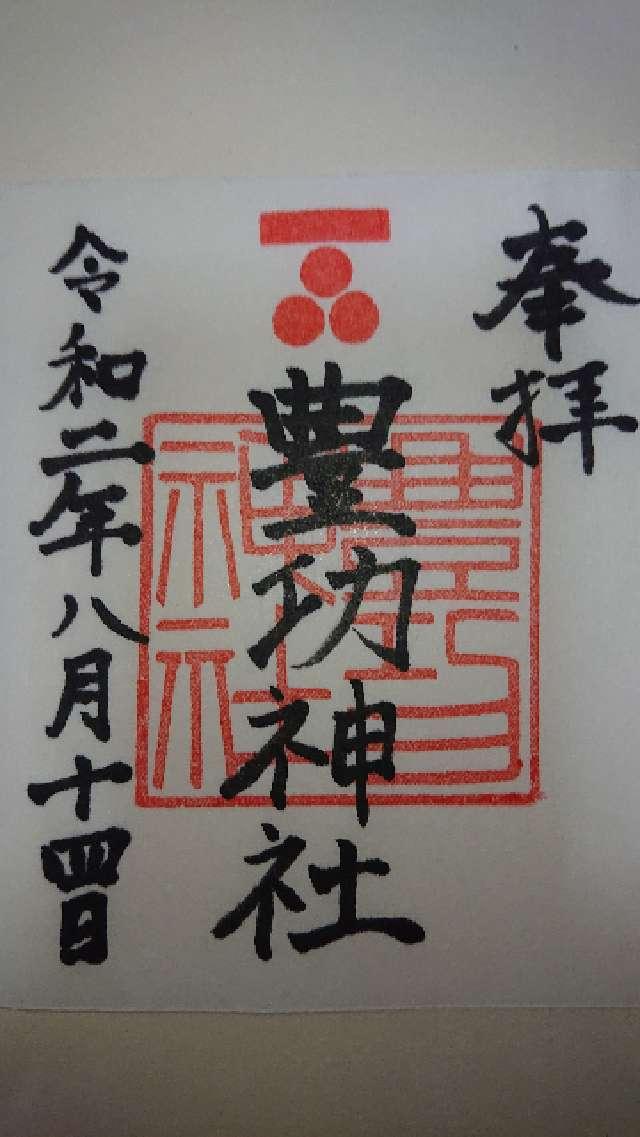 奉拝
豊功神社
豊功神社
令和二年八月十四日